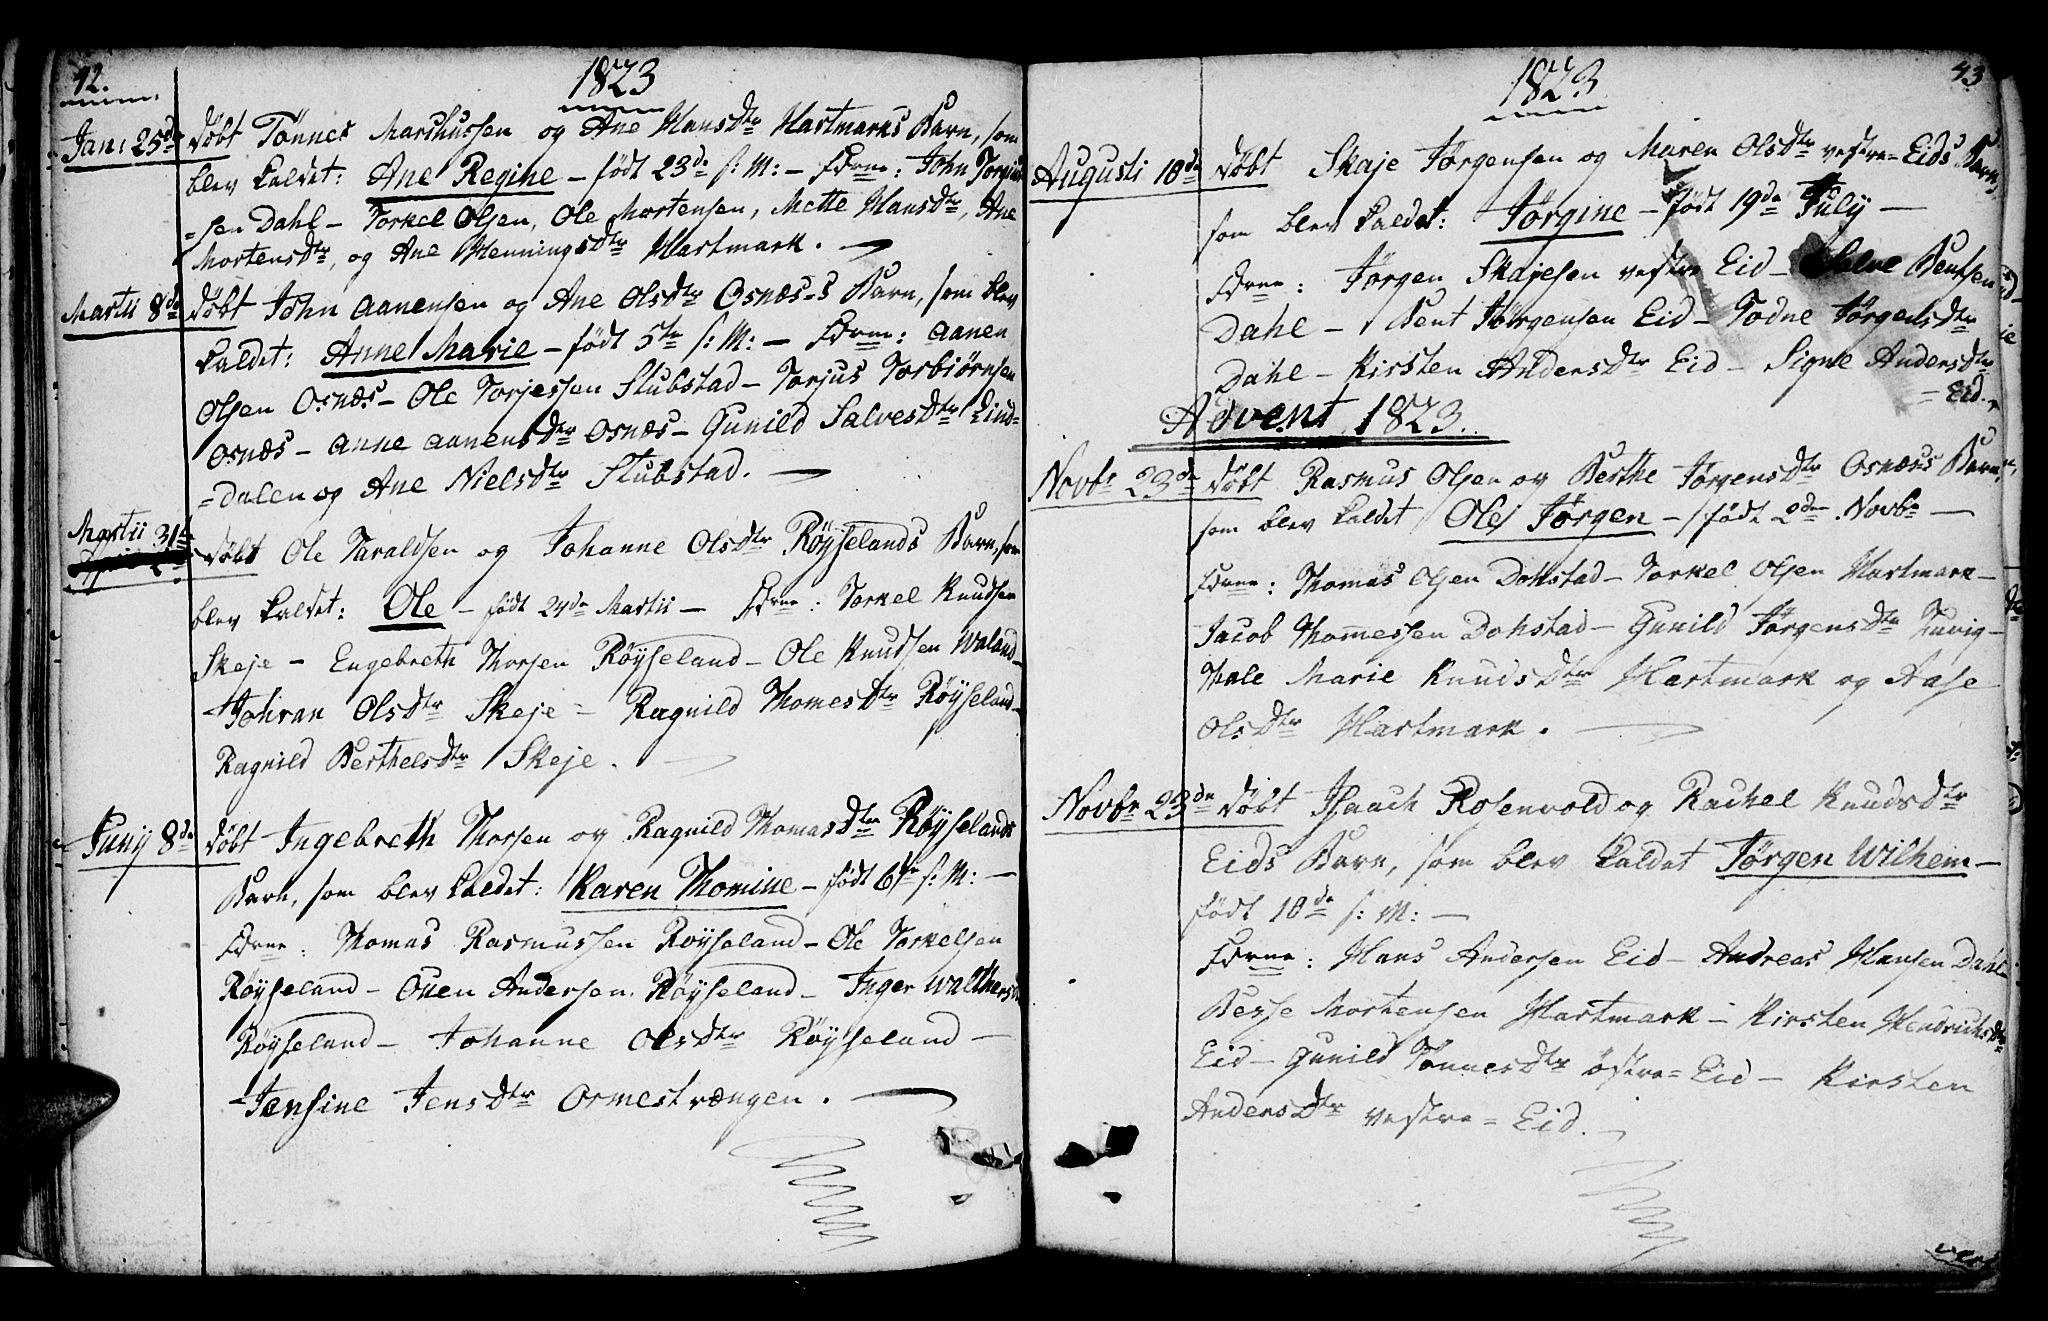 42.
1823
Jan: 25de Døbt Tønnes Marchussen og Ane Hansdtr Hartmarks Barn, som
blev kaldet: Ane Regine – født 23de s: M: – Fdrne: John Torgius
=sen Dahl – Torkel Olsen, Ole Mortensen, Mette Hansdtr, Ane
Mortensdtr, og Ane Henningsdtr Hartmark. –
Martii 8de Døbt John Aanensen og Ane Olsdtr Osnæs-s Barn, som blev
kaldet: Anne Marie – født 5te s: M: – Fdrne: Aanen
Olsen Osnæs – Ole Torjessen Stubstad – Torjus Torbiørnsen
Osnæs – Anne Aanensdtr Osnæs – Gunild Salvesdtr Lind=
=dalen og Ane Nielsdtr Stubstad. –
Martii 31te
Døbt Ole Taraldsen og Johanne Olsdtr Røyselands Barn, som
blev kaldet: Ole – født 24de Martii – Fdrne: Torkel Knudsen
Skeje – Engebreth Thorsen Røyseland – Ole Knudsen Waland –
Johran Olsdtr Skeje – Ragnild Thomesdtr Røyseland –
Ragnild Berthelsdtr Skeje. –
Juny 8de Døbt Ingebreth Thorsen og Ragnild Thomasdtr Røyselands
Barn, som blev kaldet: Karen Thomine – født 6te s: M: –
Fdrne: Thomas Rasmussen Røyseland – Ole Torkelsen
Røyseland – Ouen Andersen Røyseland – Inger Walthersdtr
Røyseland – Johanne Olsdtr Røyseland –
Jensine Jensdtr Ormestrængen. –
43
1823
Augusti 10de Døbt Skaje Jørgensen og Maren Olsdtr vestre=Eids Barn,
som blev kaldet: Jørgine – født 19de July –
Fdrne: Jørgen Skajesen vestre Eid – Salve Bentsen
Dahl – Bent Jørgensen Eid – Todne Jørgensdtr
Dahl – Kirsten Andersdtr Eid – Signe Andersdtr
= Eid. –
Advent 1823.
Novbr 23de Døbt Rasmus Olsen og Berthe Jørgensdtr Osnæs's Barn,
som blev kaldet Ole Jørgen – født 2den Novbr –
Fdrne: Thomas Olsen Dohstad – Torkel Olsen Hartmark –
Jacob Thomessen Dohstad – Gunild Jørgensdtr Tuvig –
Thale Marie Knudsdtr Hartmark og Aase
Olsdtr Hartmark. –
Novbr 23de Døbt Isaach Rosenvold og Rachel Knudsdtr
Eids Barn, som blev kaldet Jørgen Wilhem –
født 10de s: M: –
Fdrne: Hans Andersen Eid – Andreas Hansen Dahl –
Berse Mortensen Hartmark – Kirsten Hendrichsdtr
Eid – Gunild Tønnesdtr østre=Eid – Kirsten
Andersdtr vestre=Eid. –